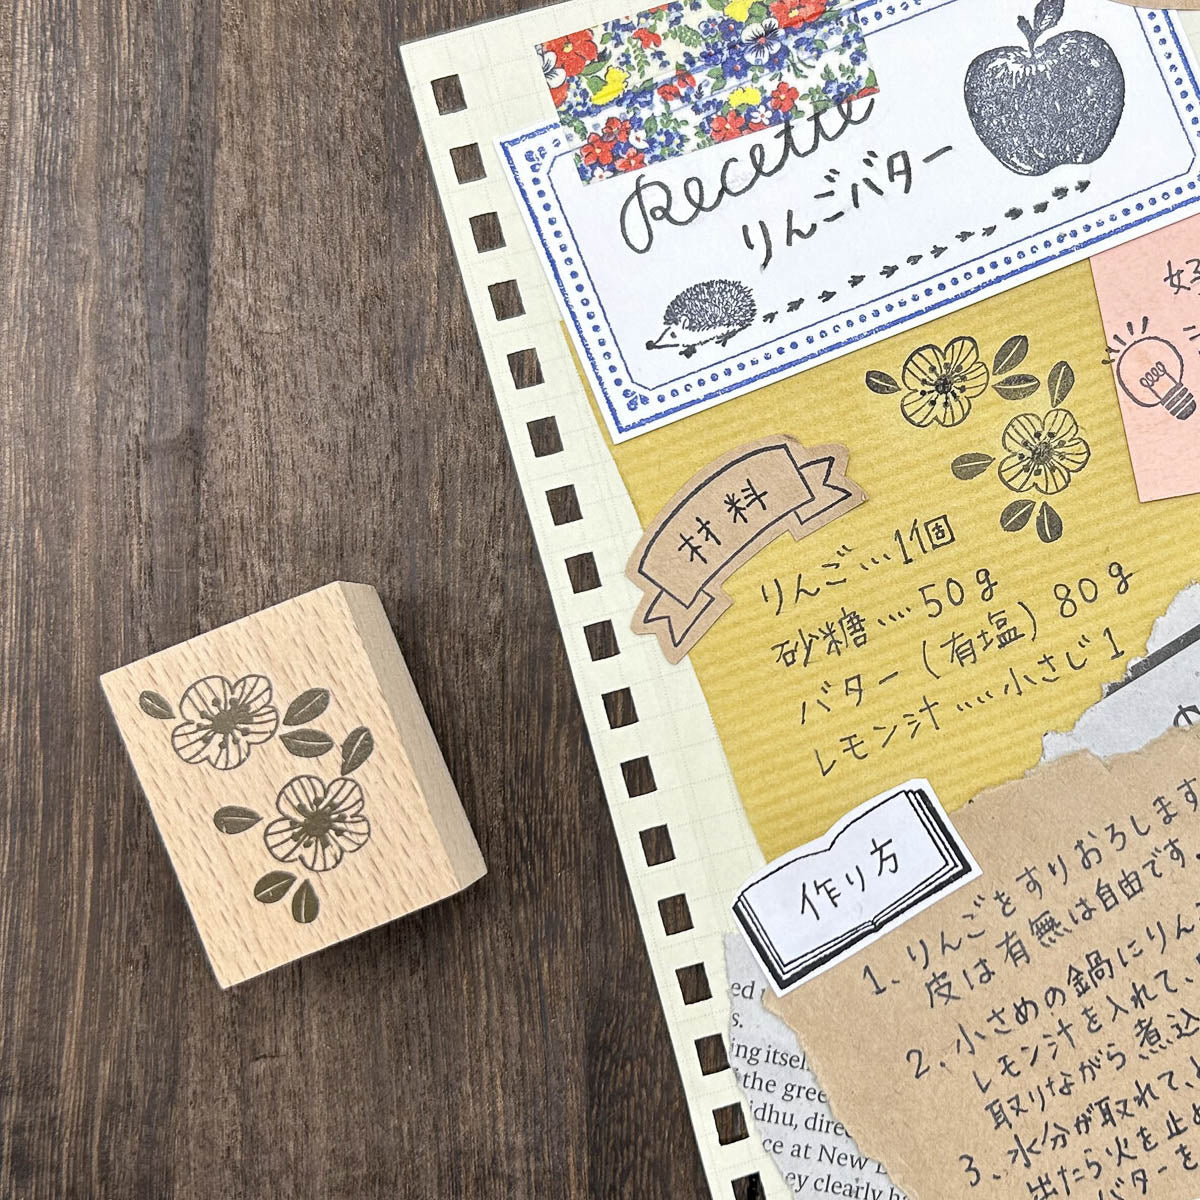 Recette
りんごバター
材料
りんご…1個
砂糖…50g
バター(有塩)80g
レモン汁……小さじ1
作り方
1. りんごをすりおろします
皮は有無は自由です。
2. 小さめの鍋にりん
レモン汁を入れて、
取りながら煮込
3. 水分が取れて、
出たら火を止め
バターを
ing itself
the gree
idhu, dire
ce at New
ey clearly h